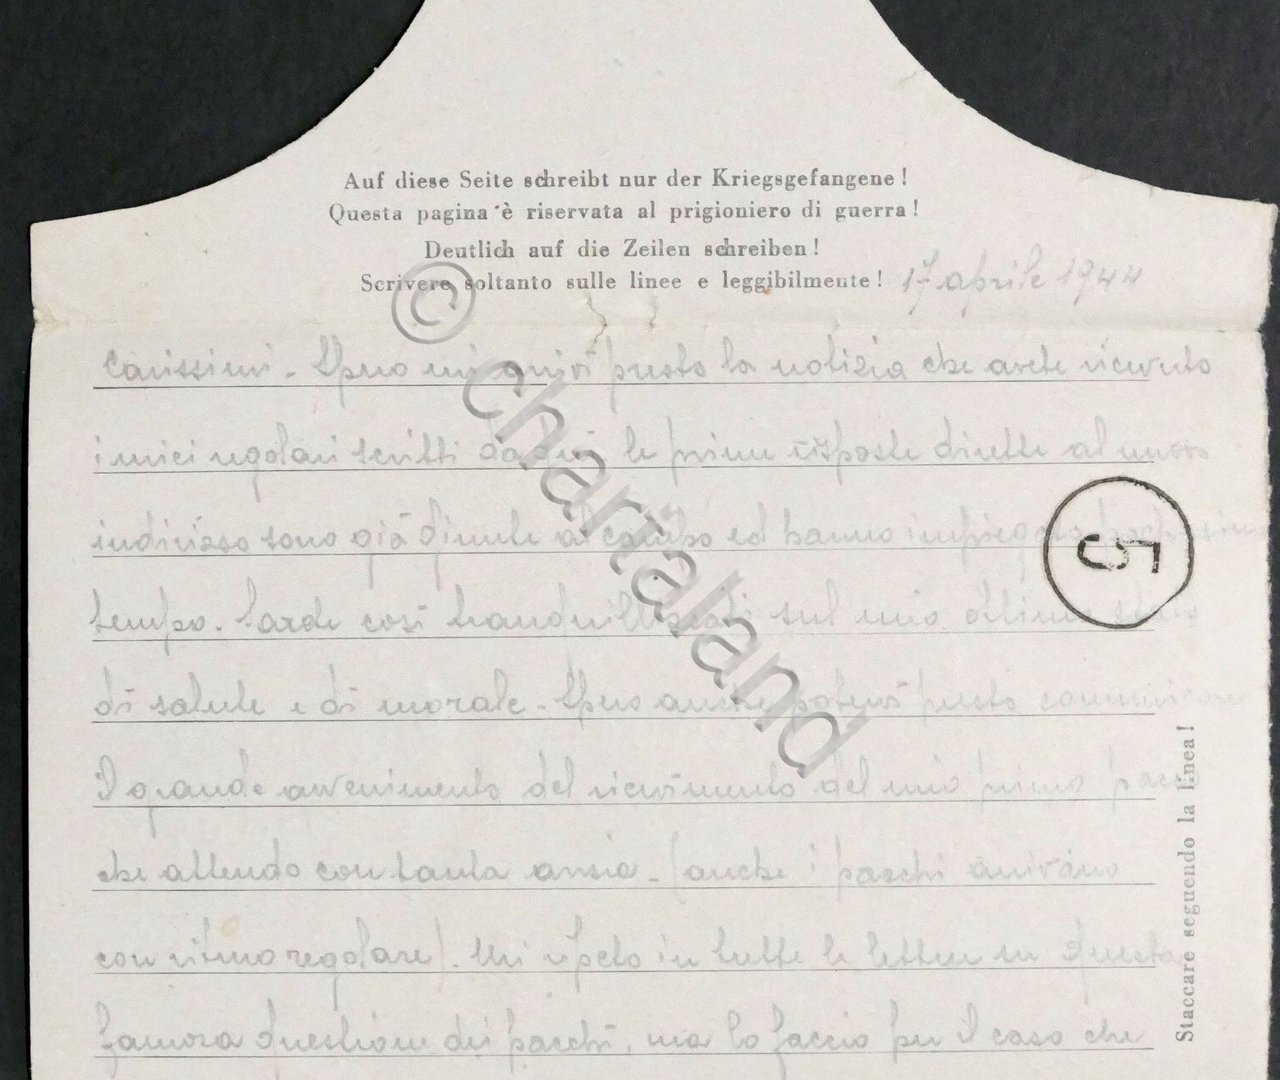 Auf diese Seite schreibt nur der Kriegsgefangene!
Questa pagina è riservata al prigioniero di guerra!
Deutlich auf die Zeilen schreiben!
Scrivere soltanto sulle linee e leggibilmente!
17 aprile 1944
Carissimi - Spero mi arrivi presto la notizia che avete ricevuto
i miei regolari scritti da qui le prime risposte dirette al nuovo
indirizzo sono già giunte al campo ed hanno impiegato pochissimo
tempo. Sarete così tranquillizzati sul mio ottimo stato
di salute e di morale - Spero anche potervi presto comunicare
il grande avvenimento del ricevimento del mio primo pacco
che attendo con tanta ansia - (anche i pacchi arrivano
con ritmo regolare). Mi ripeto in tutte le lettere su questa
famosa questione dei pacchi, ma lo faccio per il caso che
Staccare seguendo la linea!
5
© chartaland